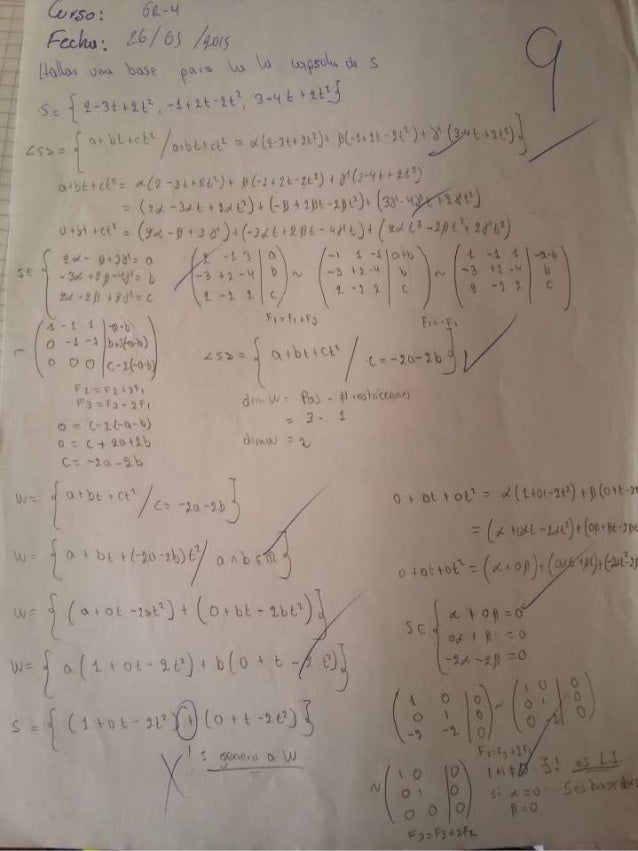 Curso: GR-4
Fecha: 26/05/2015
9
Hallar una base para la capsula de S
S = { 2-3t+2t², -1+2t-2t², 3-4t+2t² }
<S> = { a+bt+ct² / a+bt+ct² = α(2-3t+2t²) + β(-1+2t-2t²) + γ(3-4t+2t²) }
a+bt+ct² = α(2-3t+2t²) + β(-1+2t-2t²) + γ(3-4t+2t²)
= (2α-3αt+2αt²) + (-β+2βt-2βt²) + (3γ-4γt+2γt²)
a+bt+ct² = (2α-β+3γ) + (-3αt+2βt-4γt) + (2αt²-2βt²+2γt²)
SE { 2α-β+3γ = a
-3α+2β-4γ = b
2α-2β+2γ = c
( 2 -1 3 | a
-3 +2 -4 | b
2 -2 2 | c )
~ ( -1 1 -1 | a+b
-3 +2 -4 | b
2 -2 2 | c )
~ ( 1 -1 1 | -a-b
-3 +2 -4 | b
2 -2 2 | c )
~ ( 1 -1 1 | -a-b
0 -1 -1 | b+3(-a-b)
0 0 0 | c-2(-a-b) )
F2 = F2+3F1
F3 = F3-2F1
0 = c-2(-a-b)
0 = c+2a+2b
c = -2a-2b
<S> = { a+bt+ct² / c = -2a-2b }
dim W = - # restricciones
= 3 - 1
dim W = 2
W = { a+bt+ct² / c = -2a-2b }
W = { a+bt+(-2a-2b)t² / a ∧ b ∈ ℝ }
W = { (a+0t-2at²) + (0+bt-2bt²) }
W = { a(1+0t-2t²) + b(0+t-2t²) }
S = { (1+0t-2t²) + (0+t-2t²) }
X S genera a W
0+0t+0t² = α(1+0t-2t²) + β(0+t-2t
= (α+0αt-2αt²) + (0β+βt-2βt
0+0t+0t² = (α+0β) + (0αt+βt) + (-2αt²-2β
SE { α+0β = 0
0α+β = 0
-2α-2β = 0
( 1 0 | 0
0 1 | 0
-2 -2 | 0 )
~ ( 1 0 | 0
0 1 | 0
0 -2 | 0 )
F3 = F3+2F1
~ ( 1 0 | 0
0 1 | 0
0 0 | 0 )
F3 = F3+2F2
∃! es LI.
si α=0
β=0
S es base de